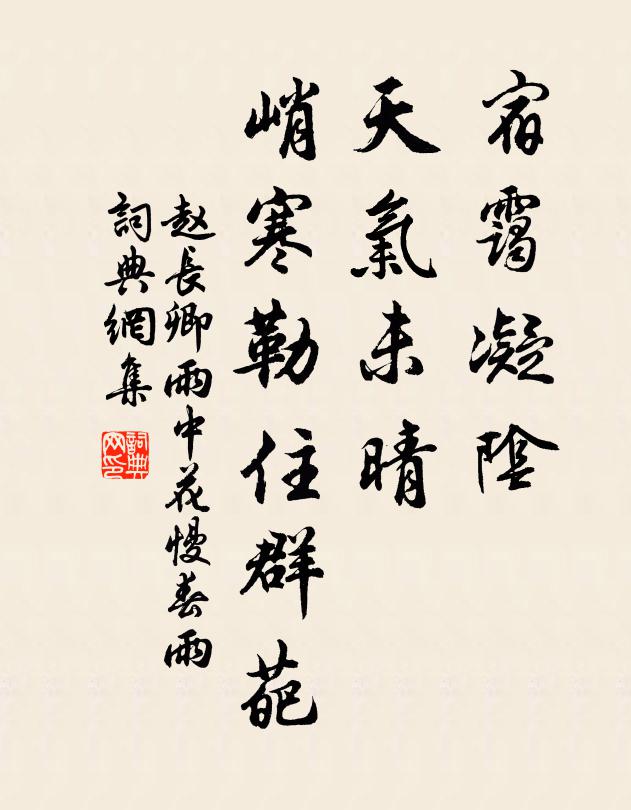 宿靄凝陰
天氣未晴
峭寒勒住群葩
赵長卿雨中花慢春雨
詞典網集
詞典网印